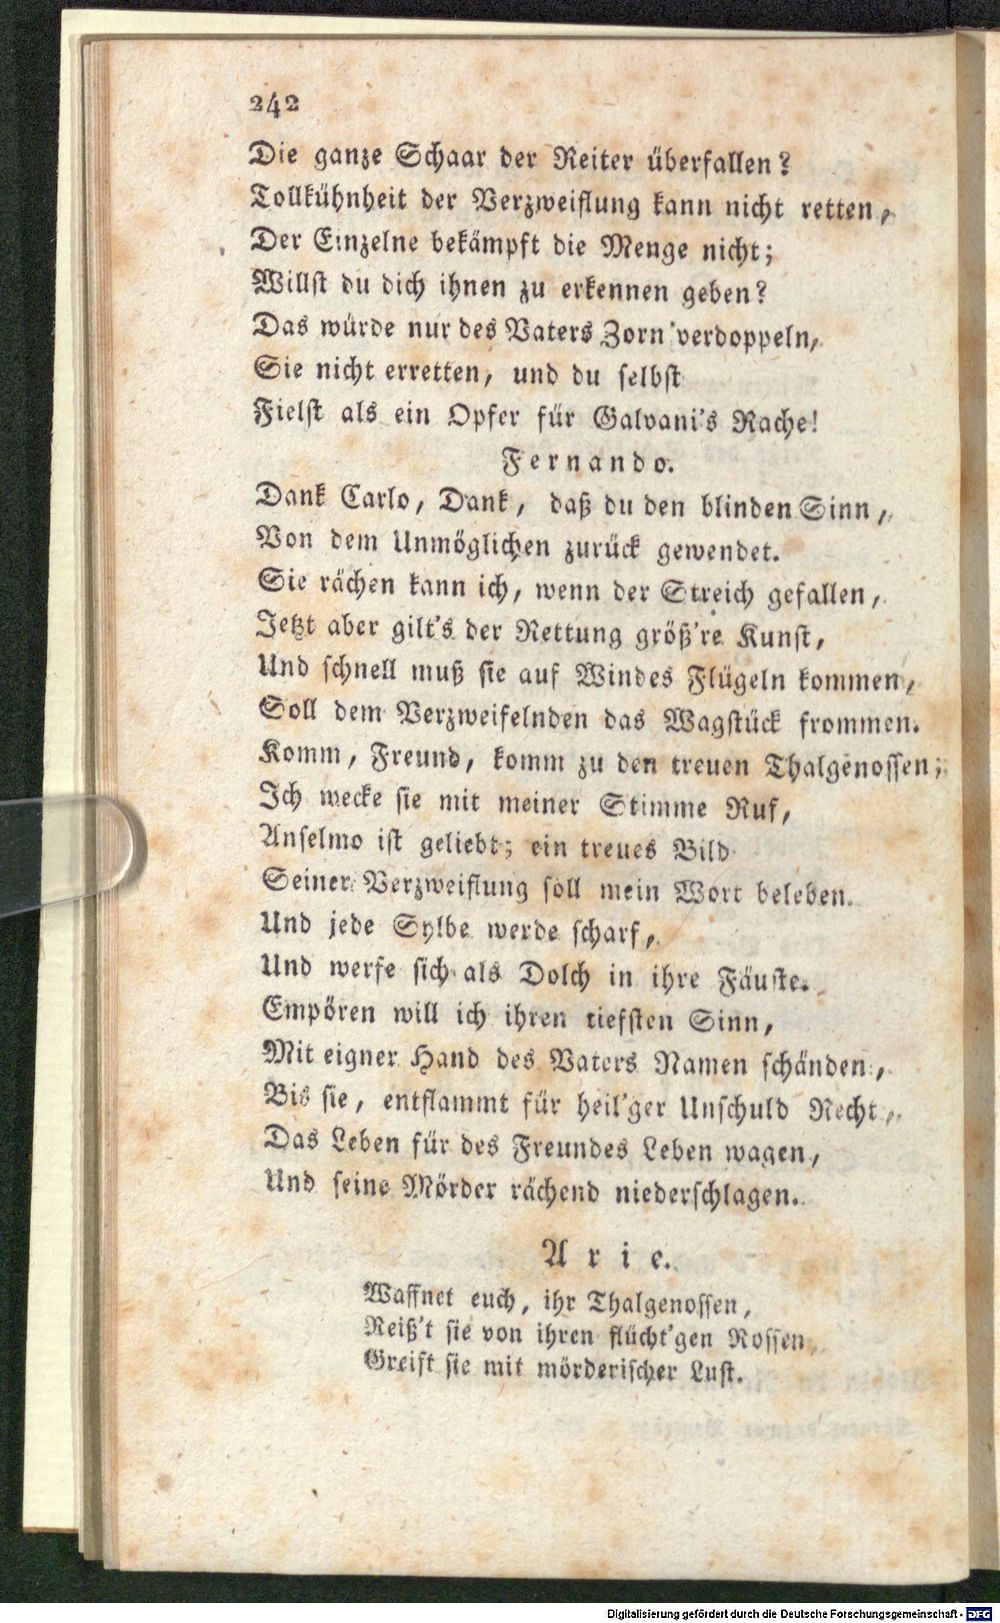 242
Die ganze Schaar der Reiter überfallen?
Tollkühnheit der Verzweiflung kann nicht retten,
Der Einzelne bekämpft die Menge nicht;
Willst du dich ihnen zu erkennen geben?
Das würde nur des Vaters Zorn verdoppeln,
Sie nicht erretten, und du selbst
Fielst als ein Opfer für Galvani's Rache!
Fernando.
Dank Carlo, Dank, daß du den blinden Sinn,
Von dem Unmöglichen zurück gewendet.
Sie rächen kann ich, wenn der Streich gefallen,
Jetzt aber gilt's der Rettung größ're Kunst,
Und schnell muß sie auf Windes Flügeln kommen,
Soll dem Verzweifelnden das Wagstück frommen.
Komm, Freund, komm zu den treuen Thalgenossen;
Ich wecke sie mit meiner Stimme Ruf,
Anselmo ist geliebt; ein treues Bild
Seiner Verzweiflung soll mein Wort beleben.
Und jede Sylbe werde scharf,
Und werfe sich als Dolch in ihre Fäuste.
Empören will ich ihren tiefsten Sinn,
Mit eigner Hand des Vaters Namen schänden,
Bis sie, entflammt für heil'ger Unschuld Recht,
Das Leben für des Freundes Leben wagen,
Und seine Mörder rächend niederschlagen.
Arie.
Waffnet euch, ihr Thalgenossen,
Reiß't sie von ihren flücht'gen Rossen,
Greift sie mit mörderischer Lust.
Digitalisierung gefördert durch die Deutsche Forschungsgemeinschaft - DFG